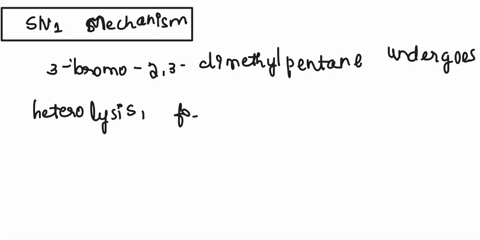 SN1 Mechanism
3-bromo-2,3-dimethylpentane undergoes
heterolysis, fo-